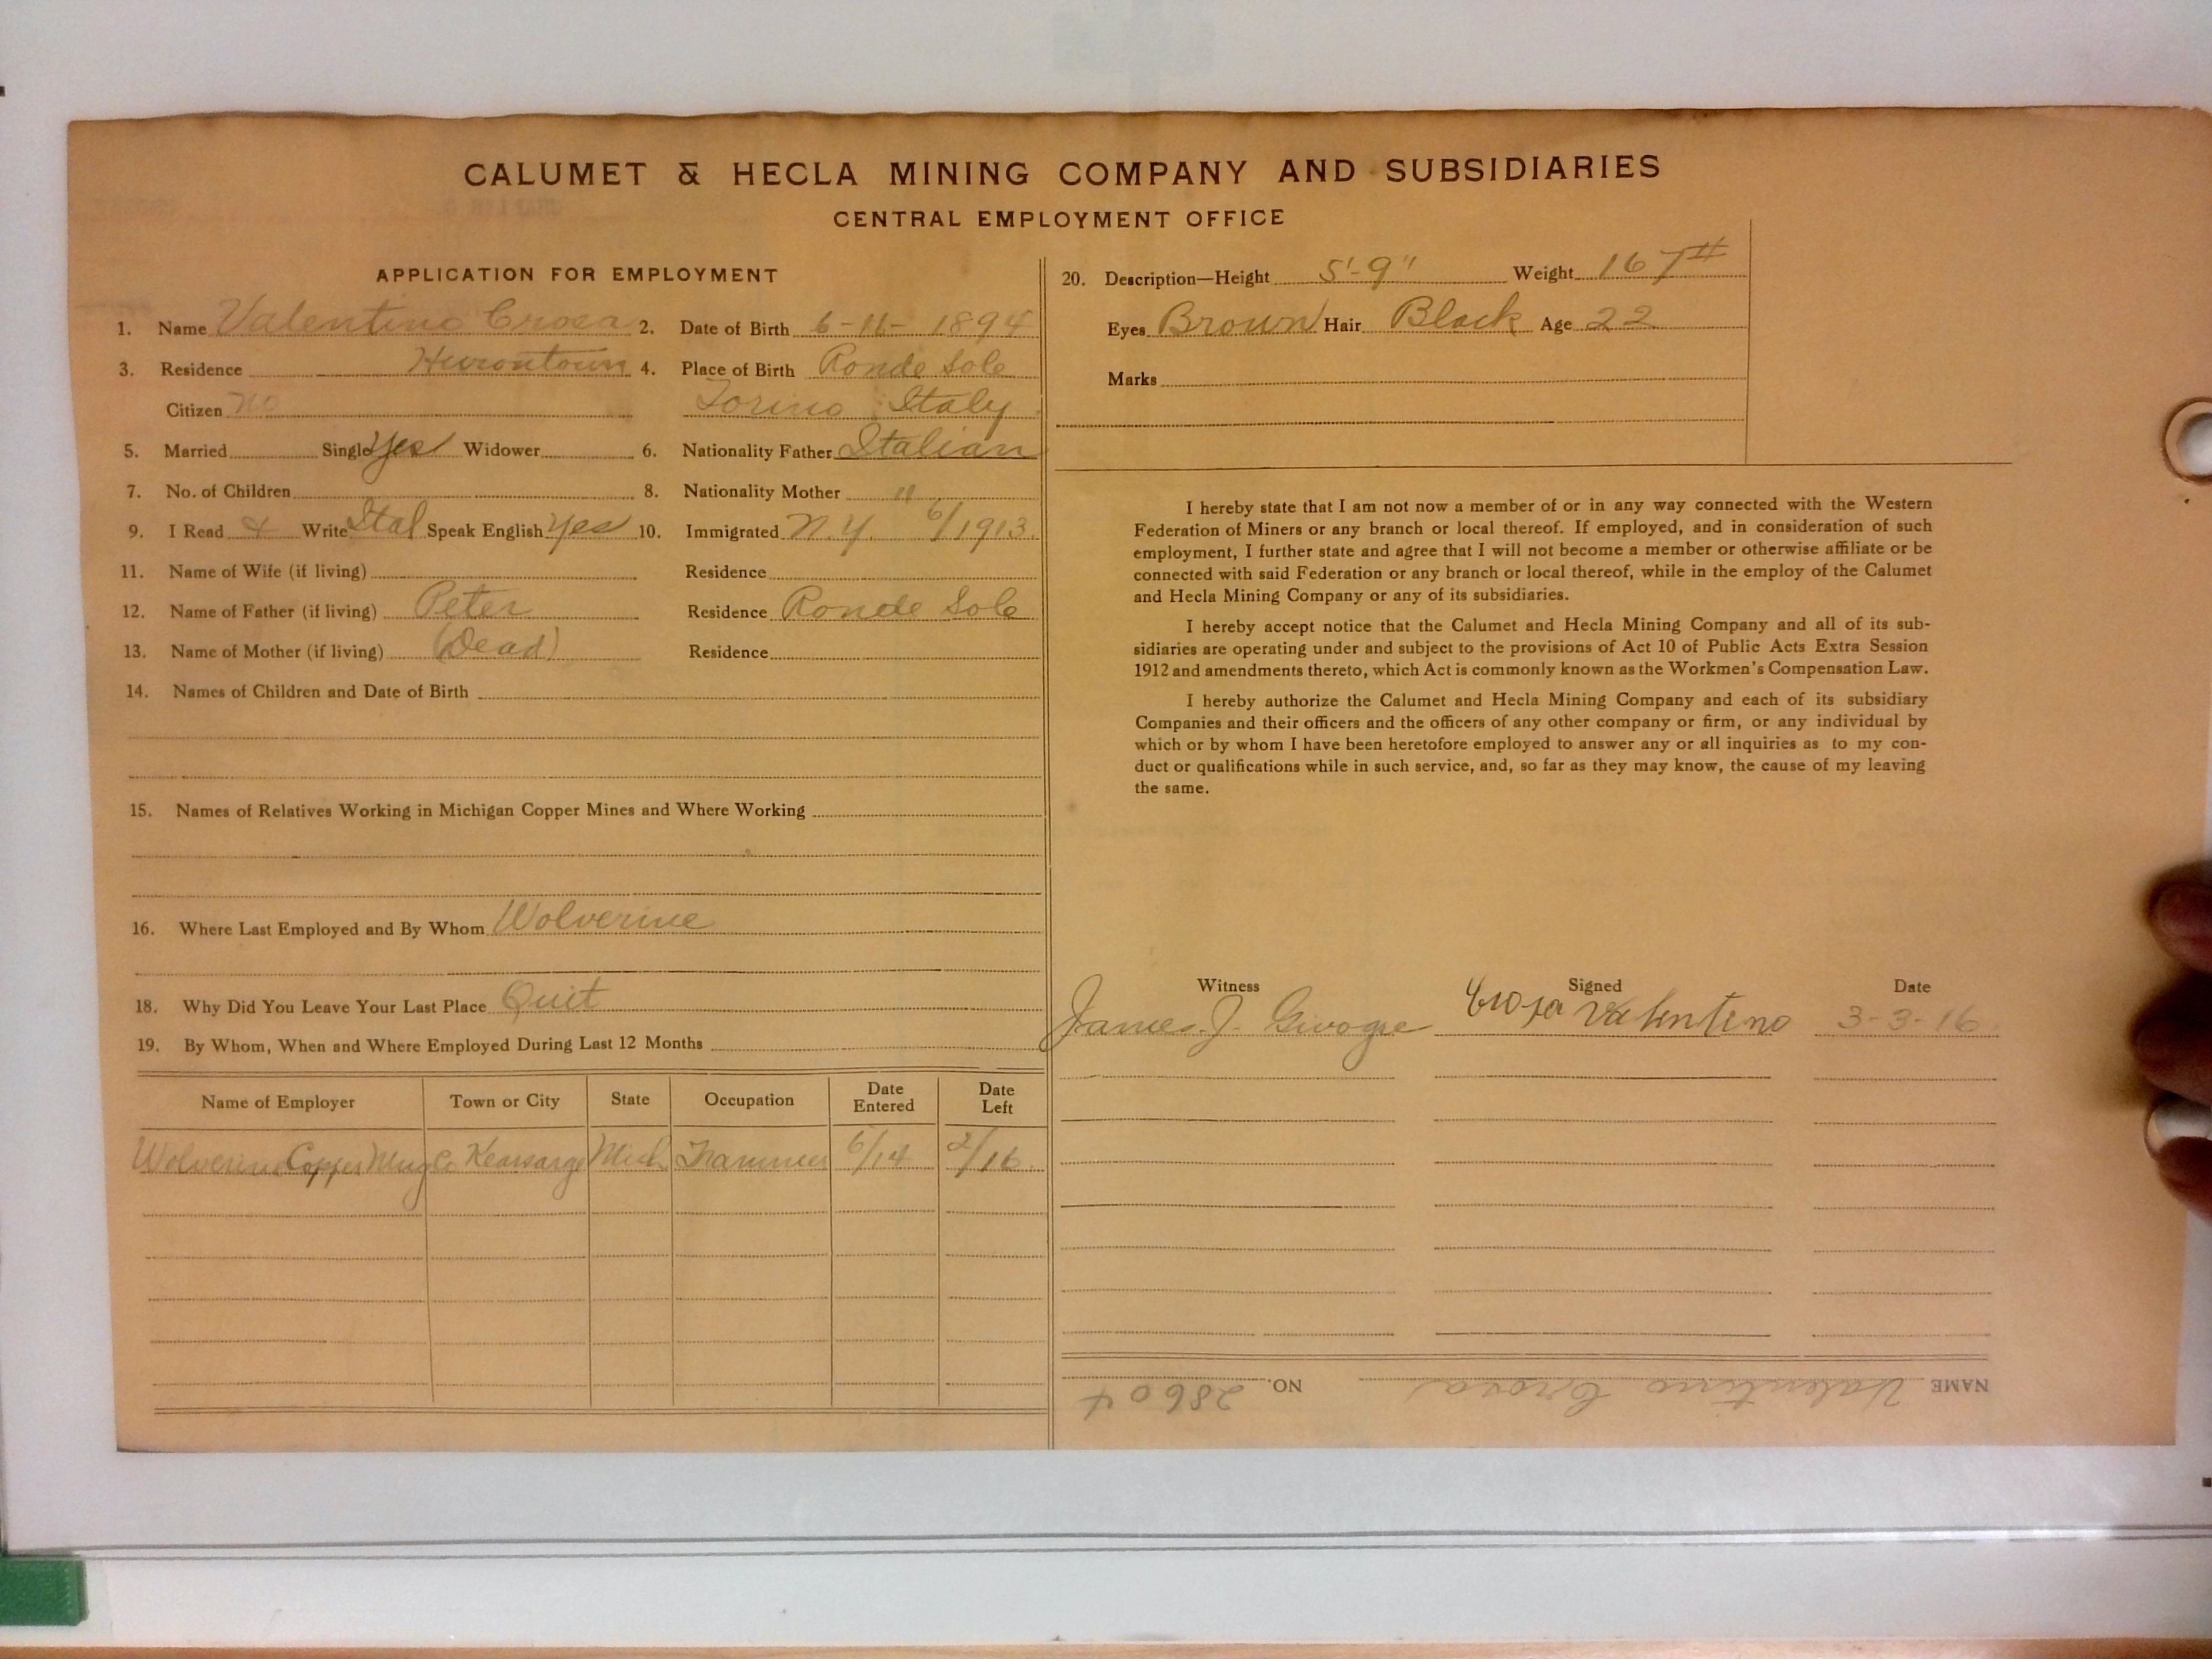 CALUMET & HECLA MINING COMPANY AND SUBSIDIARIES
CENTRAL EMPLOYMENT OFFICE
APPLICATION FOR EMPLOYMENT
1. Name Valentino Crosa 2. Date of Birth 6-11-1894
3. Residence Hurontown 4. Place of Birth Ronde Sole
Citizen no Torino Italy
5. Married Single yes Widower 6. Nationality Father Italian
7. No. of Children 8. Nationality Mother "
9. I Read & Write Ital Speak English Yes 10. Immigrated N.Y. 6/1913.
11. Name of Wife (if living) Residence
12. Name of Father (if living) Peter Residence Ronde Sole
13. Name of Mother (if living) (Dead) Residence
14. Names of Children and Date of Birth
15. Names of Relatives Working in Michigan Copper Mines and Where Working
16. Where Last Employed and By Whom Wolverine
18. Why Did You Leave Your Last Place Quit
19. By Whom, When and Where Employed During Last 12 Months
Name of Employer Town or City State Occupation Date Entered Date Left
Wolverine Copper Mng Co Kearsarge Mich Trammer 6/14 2/16.
20. Description—Height 5'-9" Weight 167#
Eyes Brown Hair Black Age 22
Marks
I hereby state that I am not now a member of or in any way connected with the Western
Federation of Miners or any branch or local thereof. If employed, and in consideration of such
employment, I further state and agree that I will not become a member or otherwise affiliate or be
connected with said Federation or any branch or local thereof, while in the employ of the Calumet
and Hecla Mining Company or any of its subsidiaries.
I hereby accept notice that the Calumet and Hecla Mining Company and all of its sub-
sidiaries are operating under and subject to the provisions of Act 10 of Public Acts Extra Session
1912 and amendments thereto, which Act is commonly known as the Workmen's Compensation Law.
I hereby authorize the Calumet and Hecla Mining Company and each of its subsidiary
Companies and their officers and the officers of any other company or firm, or any individual by
which or by whom I have been heretofore employed to answer any or all inquiries as to my con-
duct or qualifications while in such service, and, so far as they may know, the cause of my leaving
the same.
Witness Signed Date
James J. Crosa Valentino 3-3-16
NAME Valentino Crosa NO. 28604